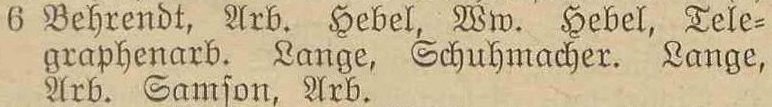 6 Behrendt, Arb. Hebel, Ww. Hebel, Tele=
graphenarb. Lange, Schuhmacher. Lange,
Arb. Samſon, Arb.